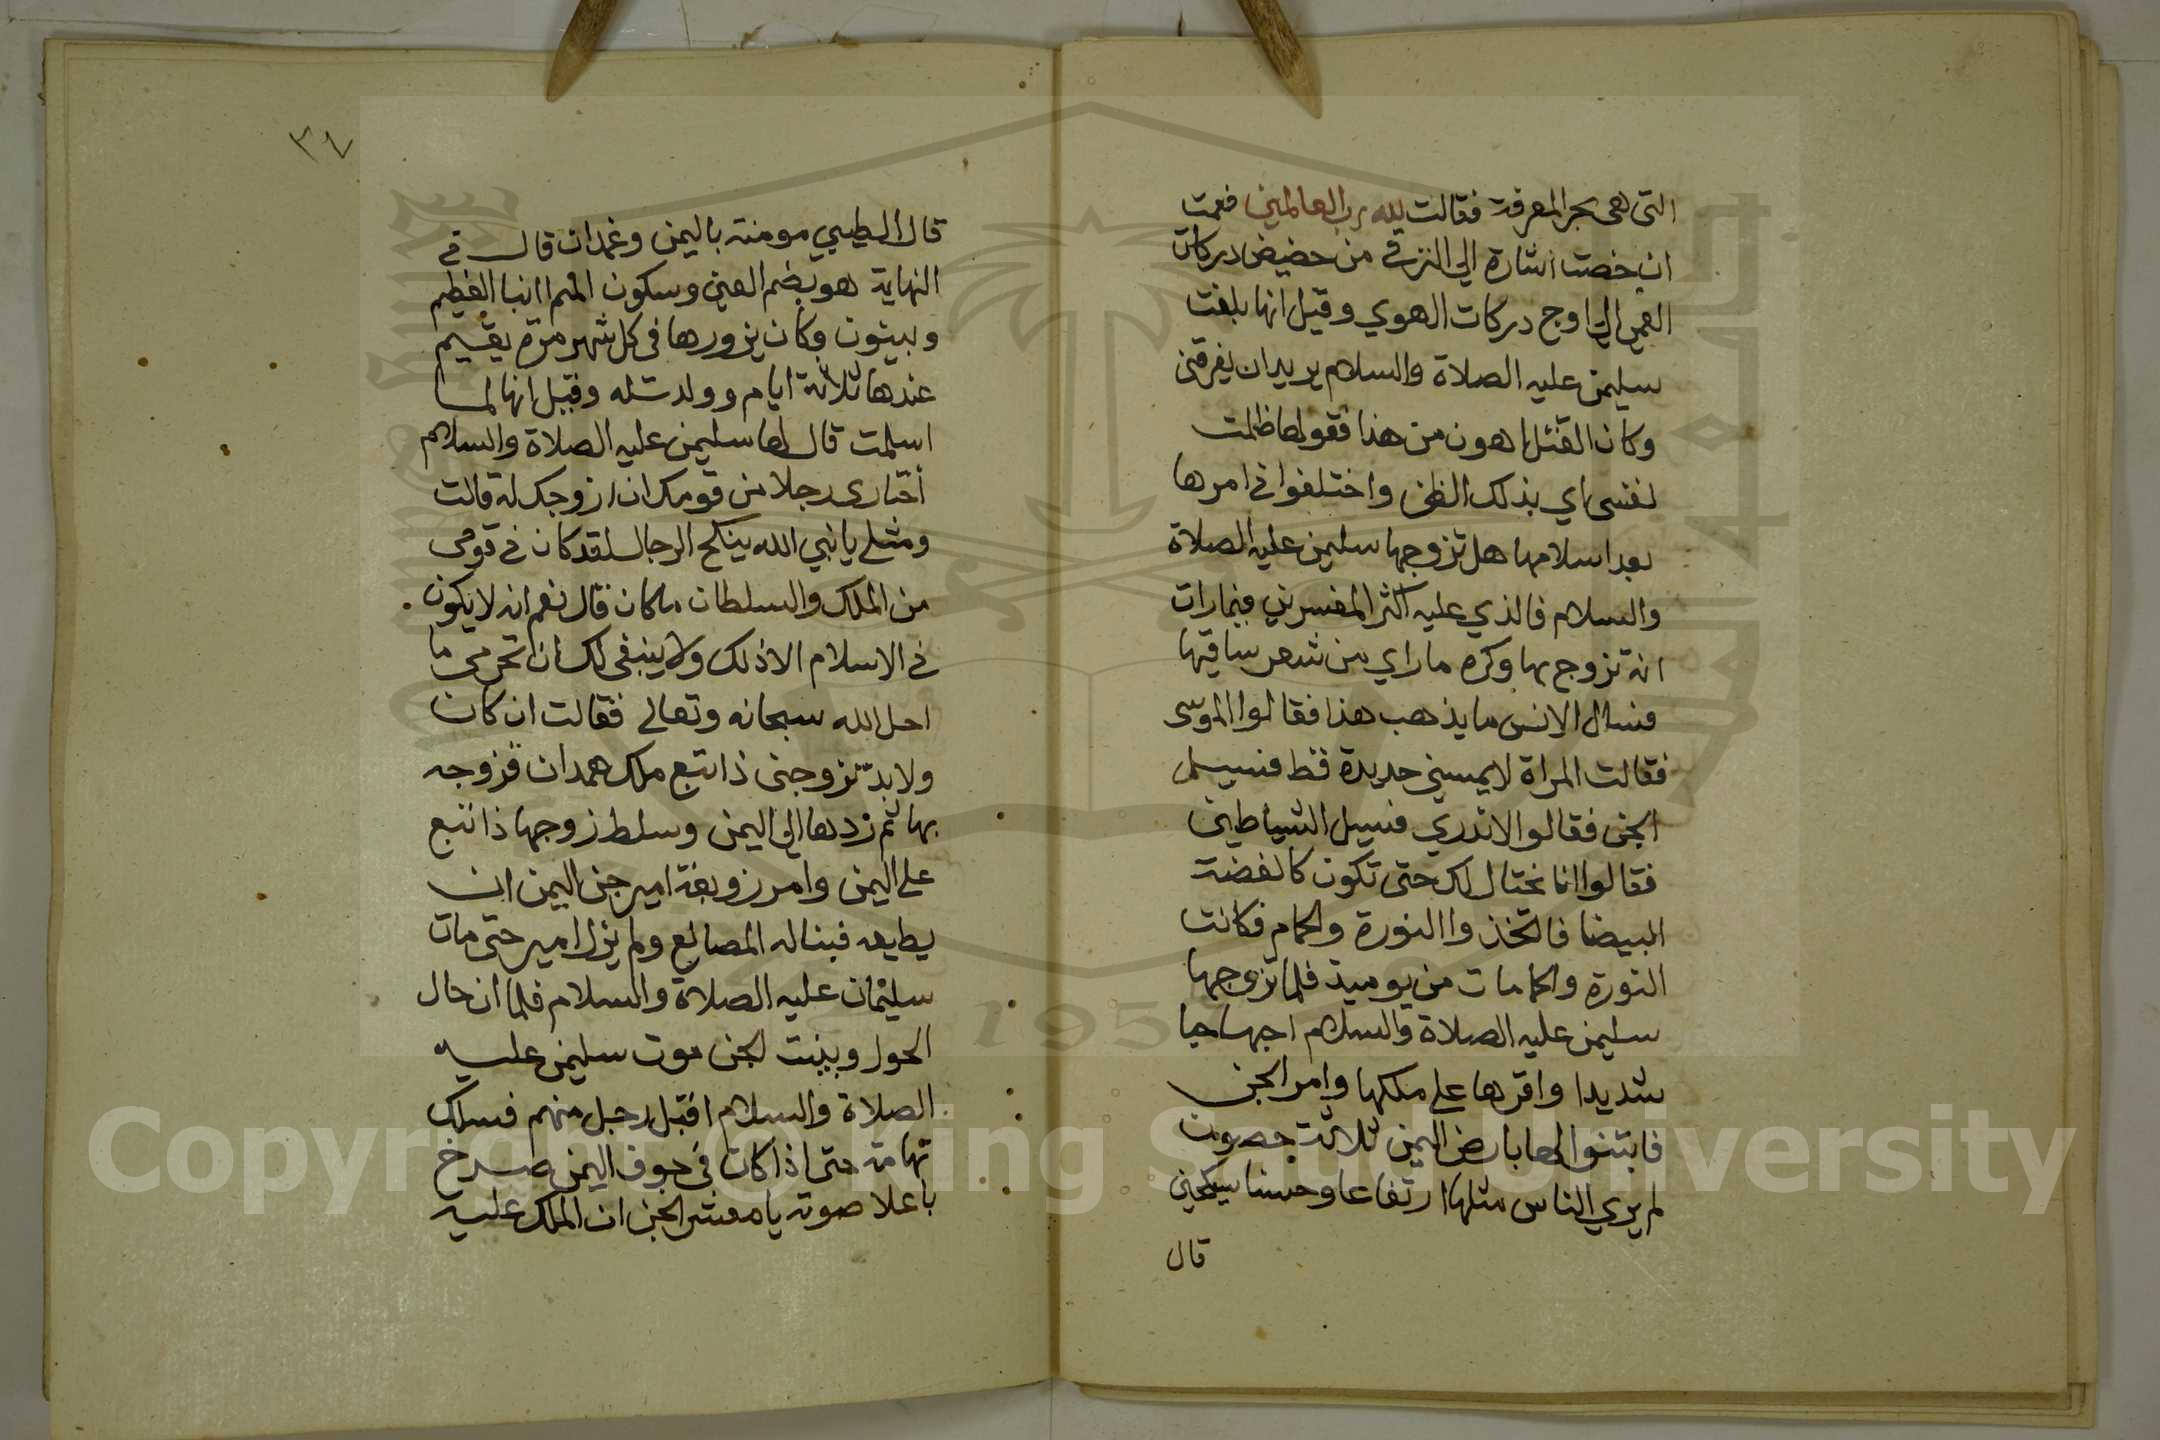 التى هى بحر المعرفة فقالت لله رب العالمين فعمت
ان خصت اشارة الي الترقي من حضيض دركات
العمى الى اوج دركات الهوي وقيل انها بلغت
سليمن عليه الصلاة والسلام يريد ان يغرقنى
وكان القتل اهون من هذا فقولها ظلمت
نفسى اي بذلك الظن واختلفوا في امرها
بعد اسلامها هل تزوجها سليمن عليه الصلاة
والسلام فالذي عليه اكثر المفسرين فيما رات
انه تزوج بها وكره ما راي من شعر ساقيها
فسال الانس ما يذهب هذا فقالوا الموسى
فقالت المراة لا يمسني حديدة قط فسيل
الجن فقالوا لا ندري فسيل الشياطين
فقالوا انا نحتال لك حتى تكون كالفضة
البيضا فاتخذوا النورة والحمام فكانت
النورة والحمامات من يوميذ فلما تزوجها
سليمن عليه الصلاة والسلام احبها حبا
شديدا واقرها على ملكها وامر الجن
فابتنوا لها بارض اليمن ثلاثة حصون
لم يري الناس مثلها ارتفاعا وحسنا سيلحين
قال
٣٤
قال الطيبي مومنة باليمن وغمدان قال في
النهاية هو بضم الغين وسكون الميم البنا العظيم
وبينون وكان يزورها فى كل شهر مرة يقيم
عندها ثلاثة ايام وولدت له وقيل انها لما
اسلمت قال لها سليمن عليه الصلاة والسلام
أختارى رجلا من قومك ان ازوجك له قالت
ومثلي يا نبي الله ينكح الرجال لقد كان في قومى
من الملك والسلطان ما كان قال نعم انه لا يكون
في الاسلام الا ذلك ولا ينبغى لك ان تحرمى ما
احل الله سبحانه وتعالى فقالت ان كان
ولا بد تزوجنى ذا تبع ملك همدان فزوجه
بها ثم ردها الى اليمن وسلط زوجها ذا تبع
على اليمن وامر زوبعة امير جن اليمن ان
يطيعه فبنا له المصانع ولم يزل امير حتى مات
سليمان عليه الصلاة والسلام فلما ان حال
الحول وبينت الجن موت سليمن عليه
الصلاة والسلام اقبل رجل منهم فسلك
تهامة حتى اذا كان في جوف اليمن صرخ
باعلا صوته يا معشر الجن ان الملك عليه
1957
Copyright © King Saud University